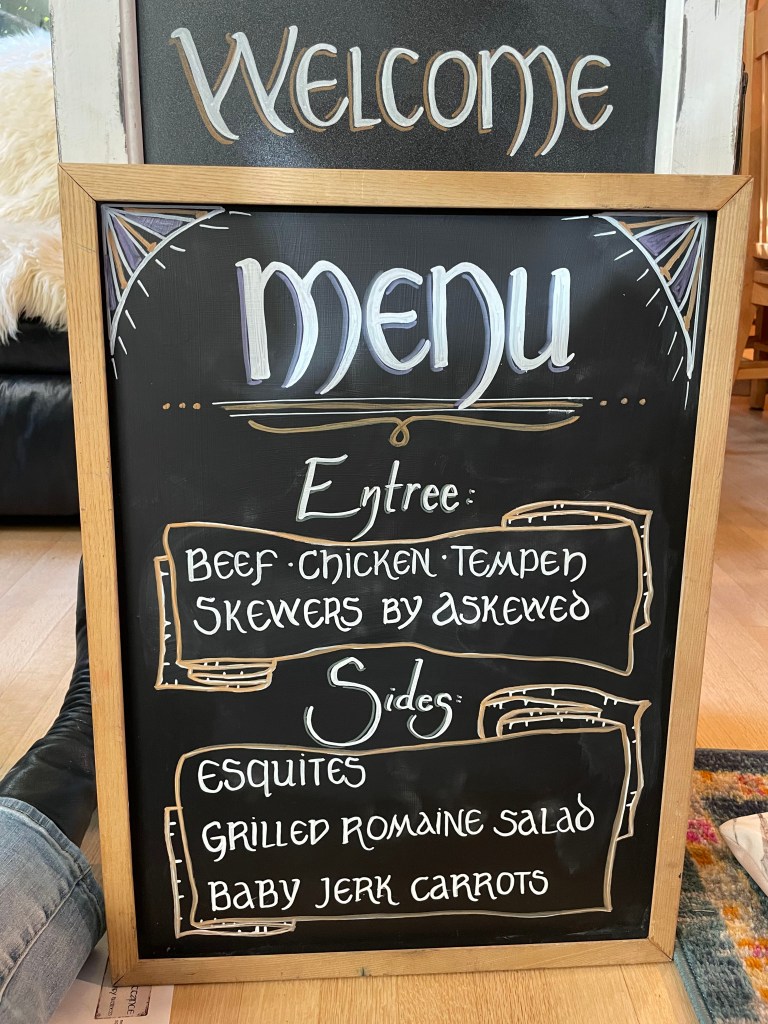 WELCOME
MENU
Entree:
BEEF · CHICKEN · TEMPEH
SKEWERS BY ASKEWED
Sides:
ESQUITES
GRILLED ROMAINE SALAD
BABY JERK CARROTS